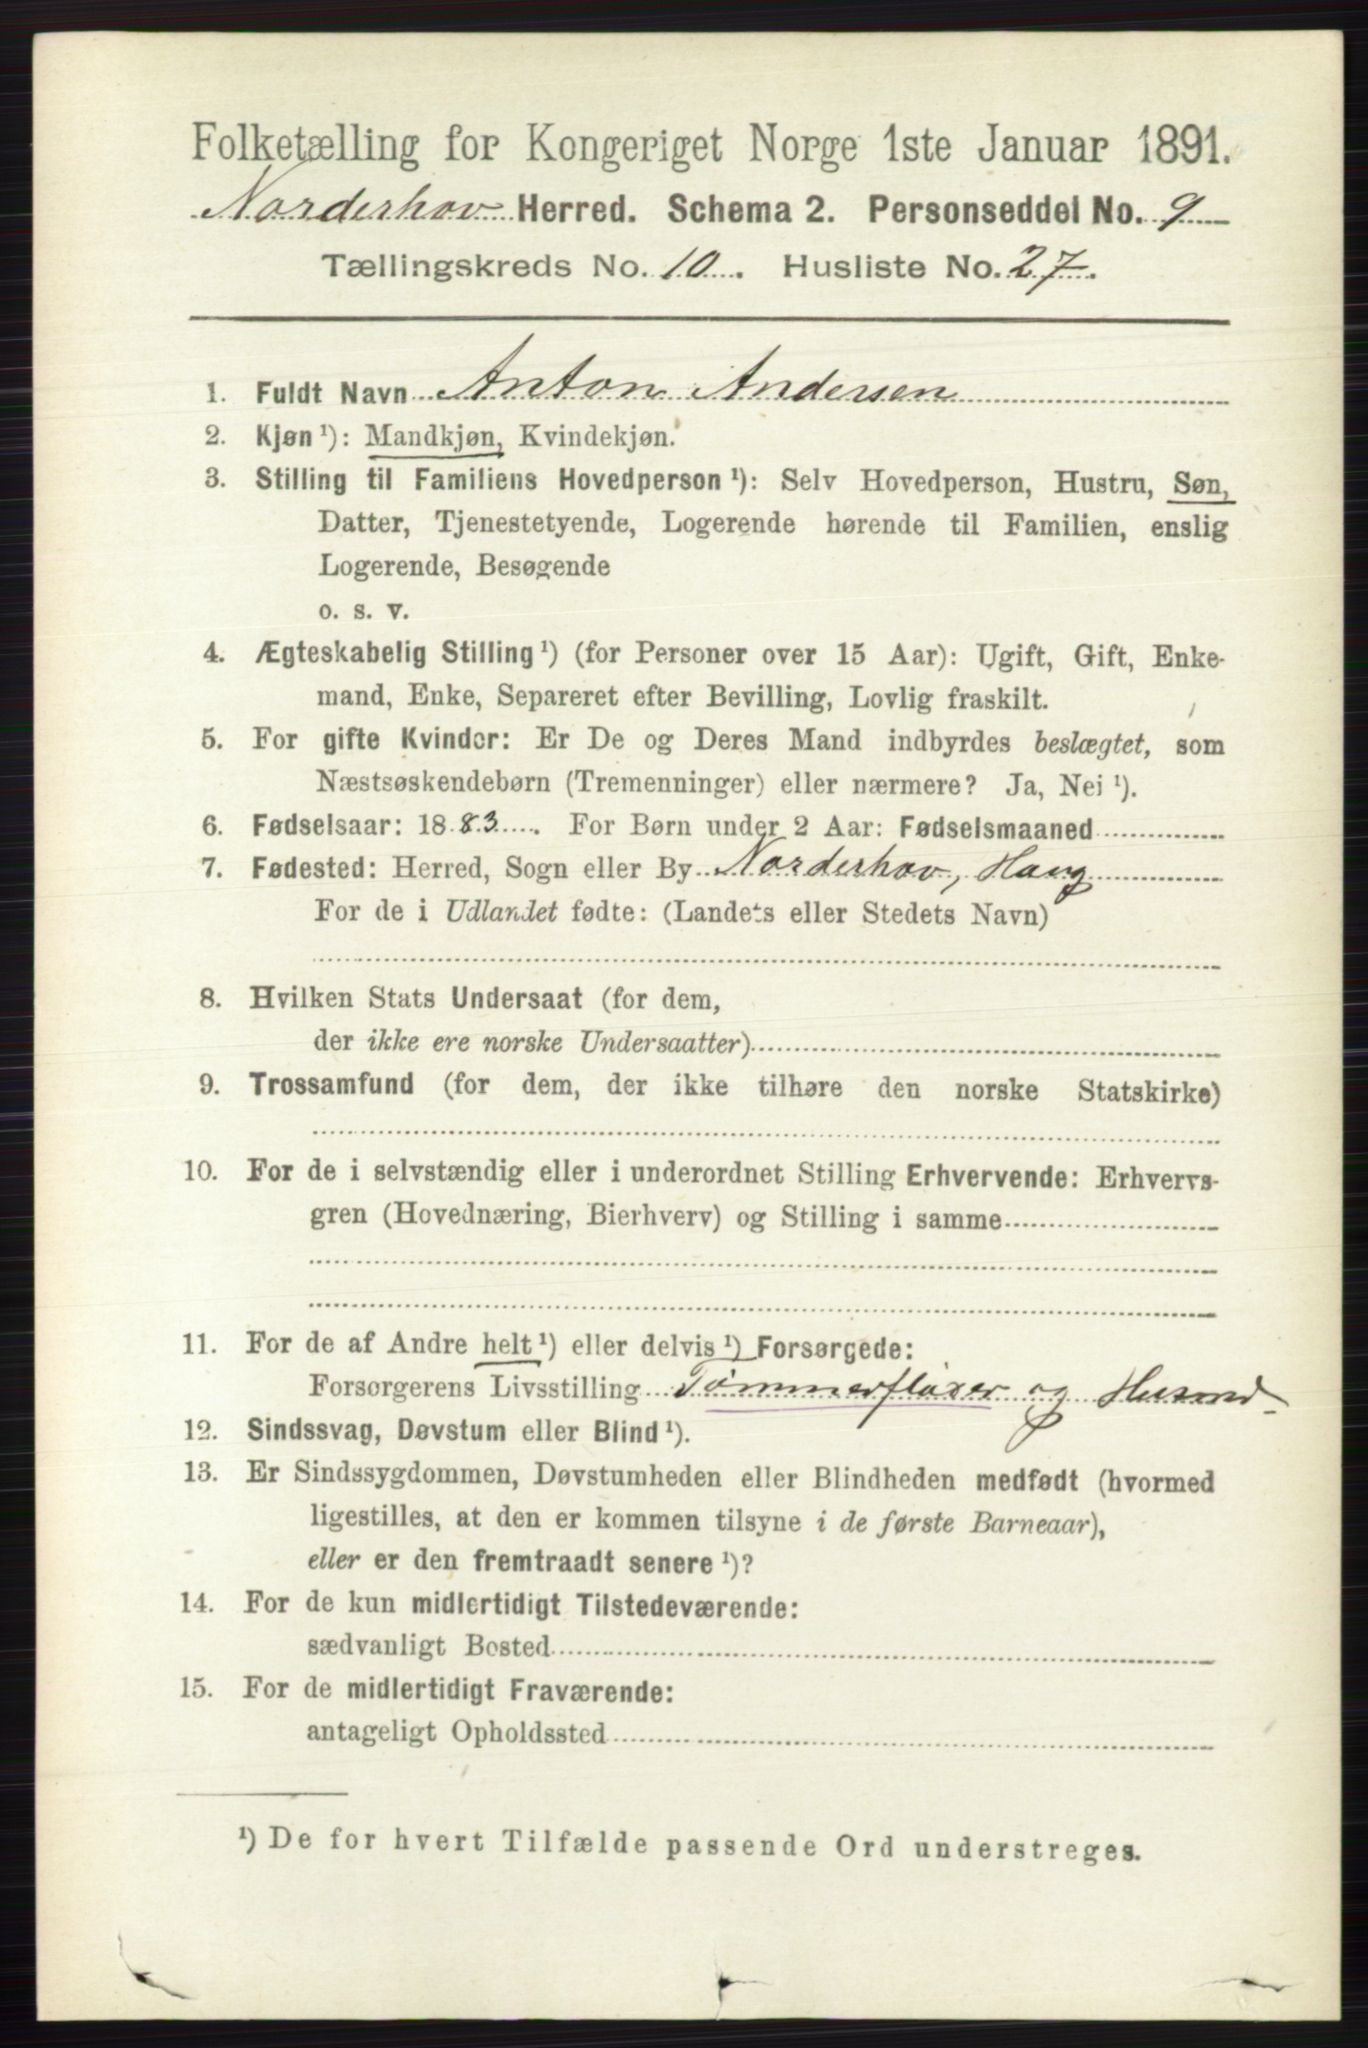 Folketælling for Kongeriget Norge 1ste Januar 1891.
Norderhov Herred. Schema 2. Personseddel No. 9
Tællingskreds No. 10. Husliste No. 27.
1. Fuldt Navn Anton Andersen
2. Kjøn ¹): Mandkjøn, Kvindekjøn.
3. Stilling til Familiens Hovedperson ¹): Selv Hovedperson, Hustru, Søn,
Datter, Tjenestetyende, Logerende hørende til Familien, enslig
Logerende, Besøgende
o. s. v.
4. Ægteskabelig Stilling ¹) (for Personer over 15 Aar): Ugift, Gift, Enke-
mand, Enke, Separeret efter Bevilling, Lovlig fraskilt.
5. For gifte Kvinder: Er De og Deres Mand indbyrdes beslægtet, som
Næstsøskendebørn (Tremenninger) eller nærmere? Ja, Nei ¹).
6. Fødselsaar: 1883. For Børn under 2 Aar: Fødselsmaaned
7. Fødested: Herred, Sogn eller By Norderhov, Haug
For de i Udlandet fødte: (Landets eller Stedets Navn)
8. Hvilken Stats Undersaat (for dem,
der ikke ere norske Undersaatter)
9. Trossamfund (for dem, der ikke tilhøre den norske Statskirke)
10. For de i selvstændig eller i underordnet Stilling Erhvervende: Erhvervs-
gren (Hovednæring, Bierhverv) og Stilling i samme
11. For de af Andre helt ¹) eller delvis ¹) Forsørgede:
Forsørgerens Livsstilling Tømmerfløder og Husmd
12. Sindssvag, Døvstum eller Blind ¹).
13. Er Sindssygdommen, Døvstumheden eller Blindheden medfødt (hvormed
ligestilles, at den er kommen tilsyne i de første Barneaar),
eller er den fremtraadt senere ¹)?
14. For de kun midlertidigt Tilstedeværende:
sædvanligt Bosted
15. For de midlertidigt Fraværende:
antageligt Opholdssted
¹) De for hvert Tilfælde passende Ord understreges.